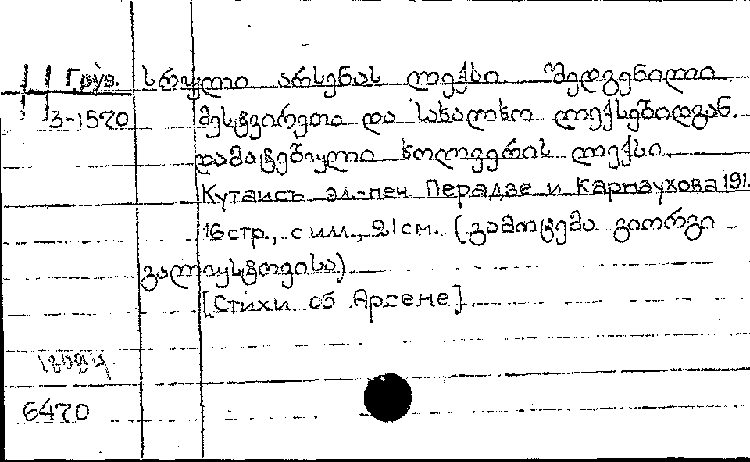 Груз. სრული არსენას ლექსი შედგენილი
3-1520 მესტვირეთა და სახალხო ლექსებიდგან.
დამატებული ხოლევრის ლექსი.
Кутаисъ эл.-печ. Перадзе и Карнаухова 191.
16 стр., с ил., 21 см. (გამოცემა გიორგი
[Стихи об Арсене]
6470